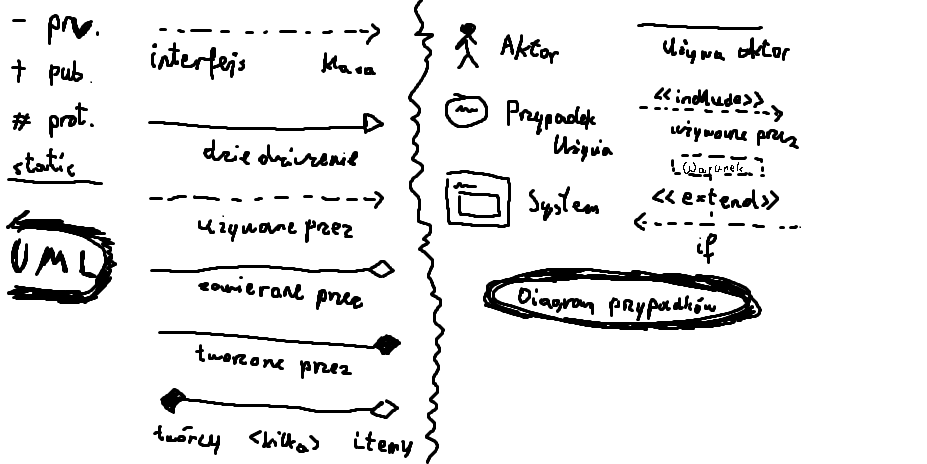 - prv.
+ pub.
# prot.
static
UML
interfejs klasa
dziedziczenie
używane przez
zawierane przez
tworzone przez
twórcy <kilka> itemy
Aktor
Przypadek
Użycia
System
Używa aktor
<<include>>
używane przez
Warunek
<<extend>>
if
Diagram przypadków